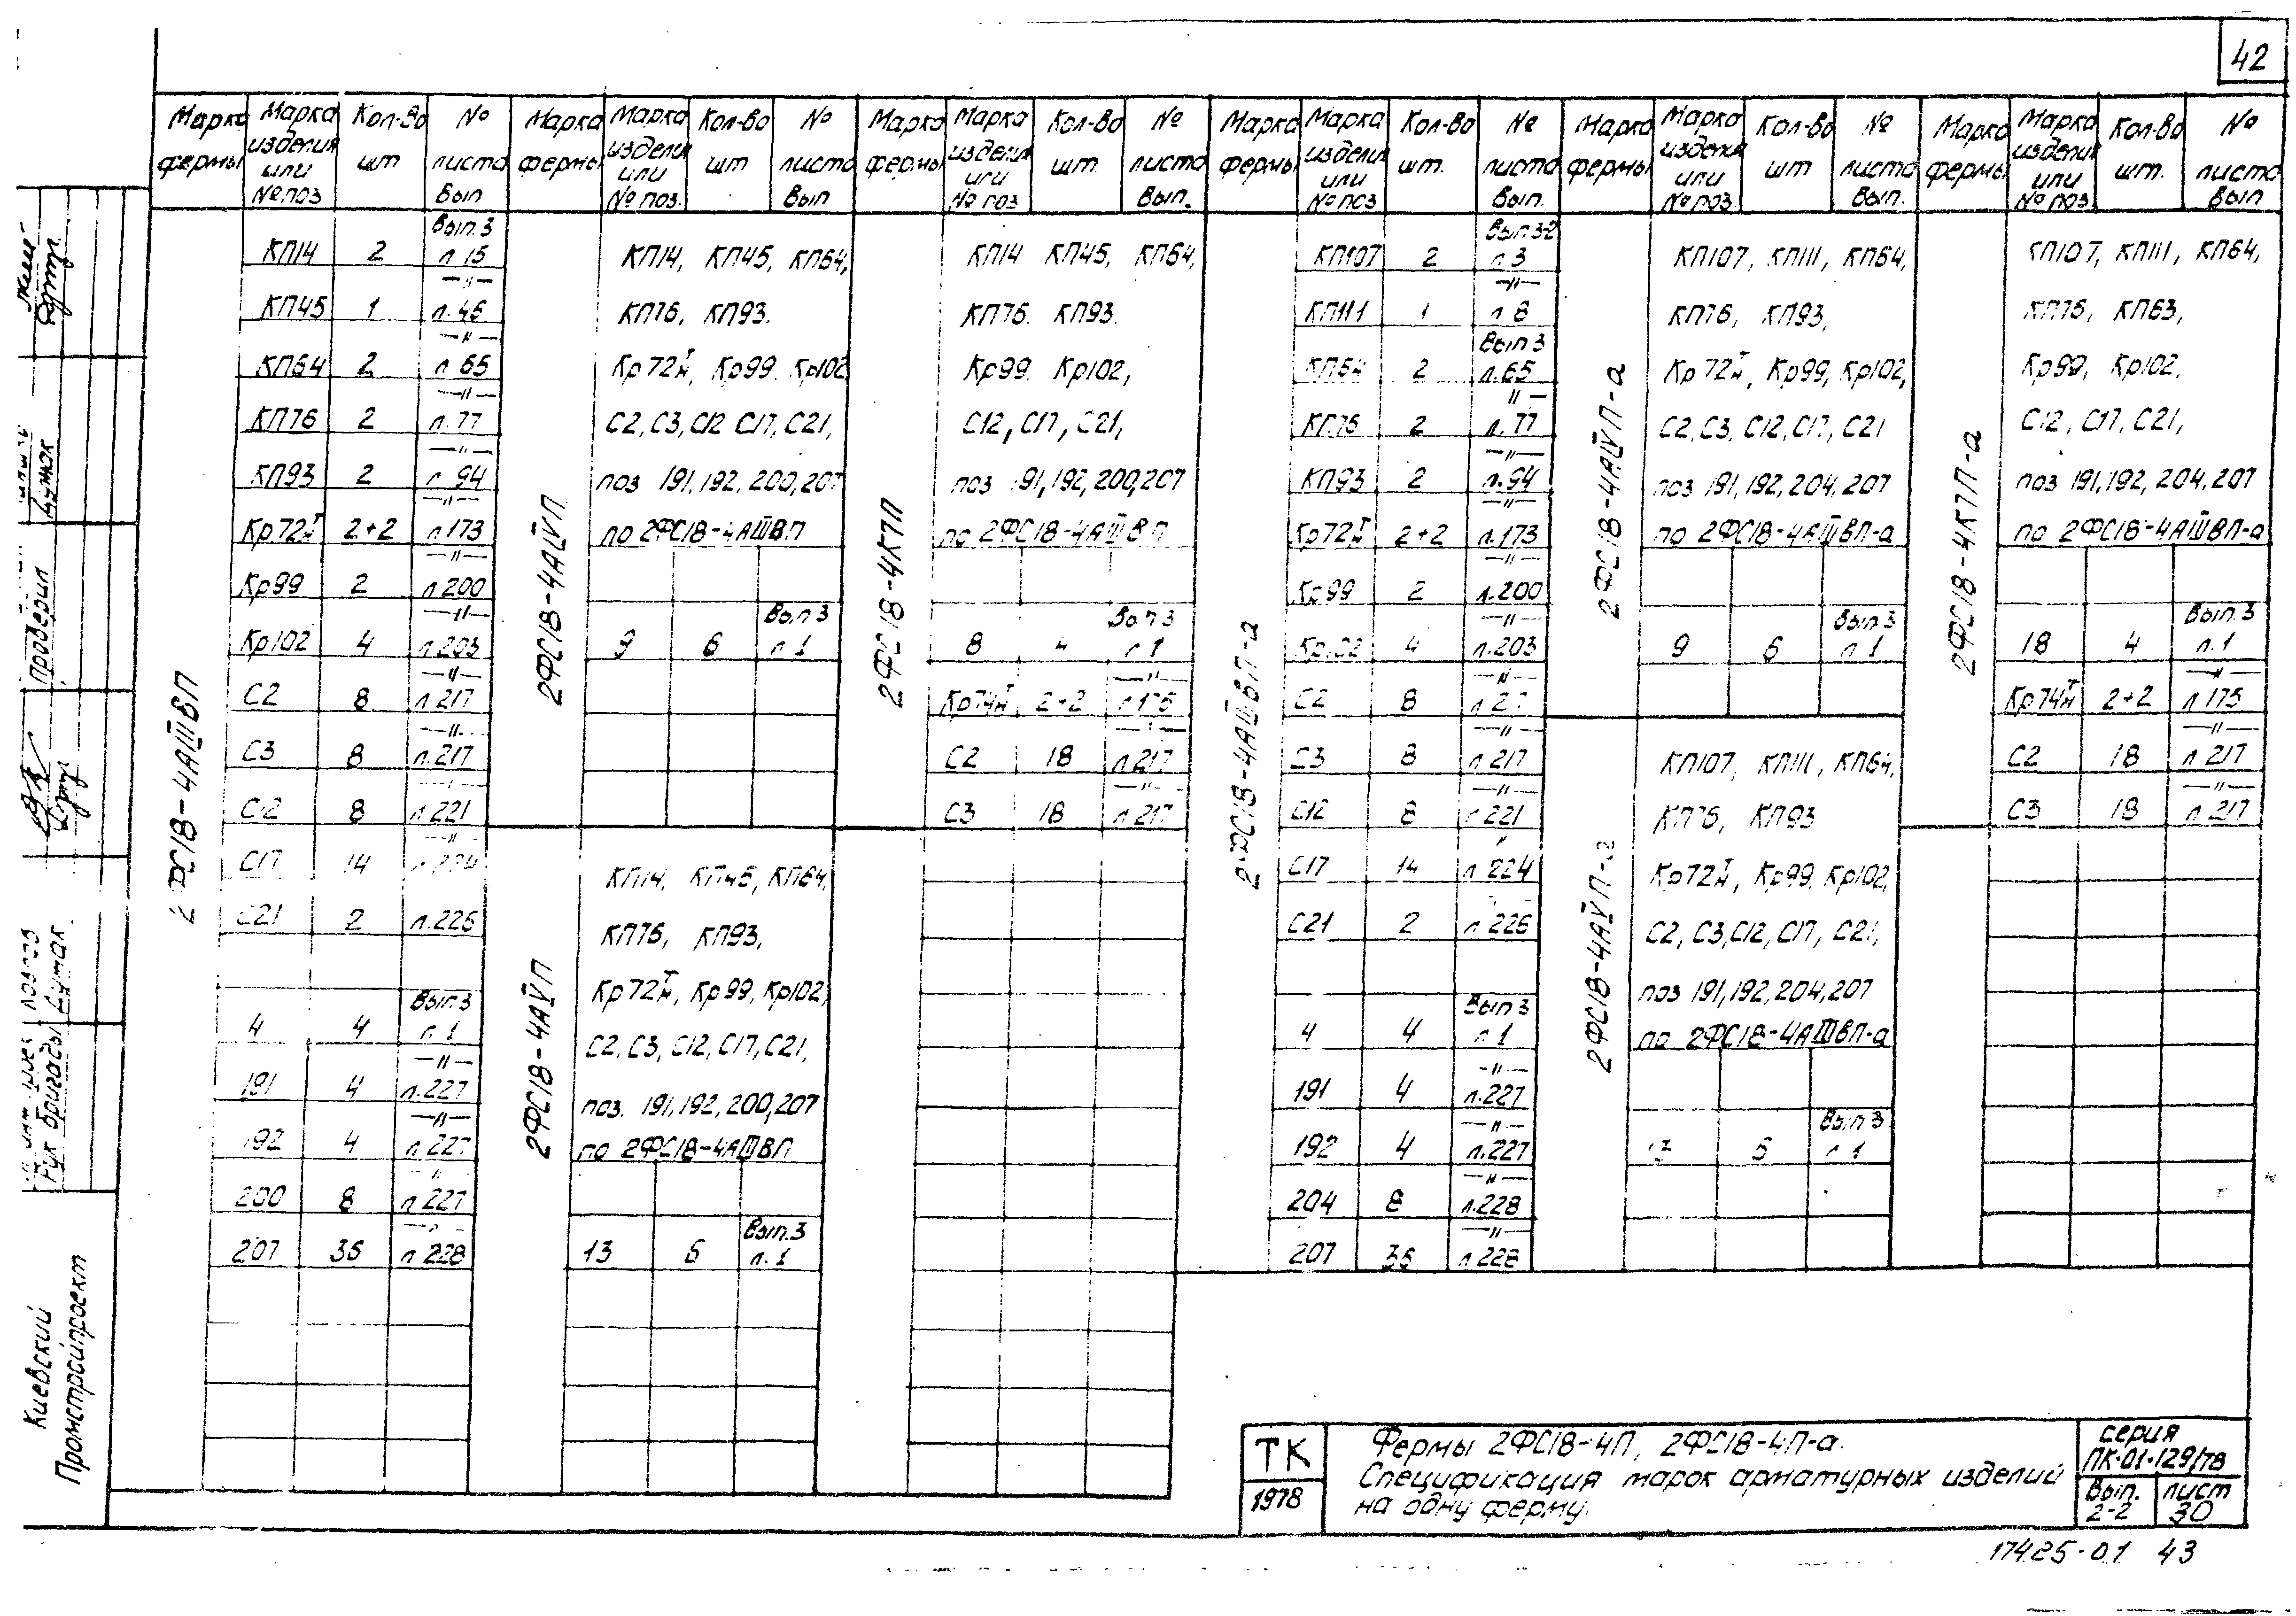 42
Марка фермы | Марка изделия или № поз | Кол-во шт | № листа Вып
2ФС18-4АШВП
КП14 2 Вып.3 л 15
КП45 1 —"— л.46
КП64 2 —"— л 65
КП76 2 —"— л.77
КП93 2 —"— л 94
Кр72Тн 2+2 —"— л173
Кр99 2 —"— л200
Кр102 4 —"— л.203
С2 8 —"— л217
С3 8 —"— л.217
С12 8 л 221
С17 14 —"—
С21 2 л.226
4 4 Вып.3 л 1
191 4 —"— л.227
192 4 —"— л 227
200 8 " л 227
207 36 л 228
Марка фермы | Марка изделия или № поз. | Кол-во шт | № листа Вып
2ФС18-4АIVП
КП14, КП45, КП64,
КП76, КП93.
Кр72Тн, Кр99 Кр102,
С2, С3, С12 С17, С21,
поз 191, 192, 200, 207
по 2ФС18-4АШВП
9 6 Вып 3 л 1
2ФС18-4АVП
КП14, КП45, КП64,
КП76, КП93,
Кр72Тн, Кр99, Кр102,
С2, С3, С12, С17, С21,
поз. 191, 192, 200, 207
по 2ФС18-4АШВП
13 6 Вып.3 л. 1
Марка фермы | Марка изделия или № поз | Кол-во шт. | № листа Вып.
2ФС18-4КПП
КП14 КП45, КП64,
КП76. КП93.
Кр99. Кр102,
С12, С17, С21,
поз 191, 192, 200, 207
по 2ФС18-4АШВП
8 4 Вып 3 л 1
Кр74Тн 2+2 —"— л 175
С2 18 л 217
С3 18 —"— л 217
Марка фермы | Марка изделия или № поз | Кол-во шт. | № листа Вып.
2ФС18-4АШВП-а
КП107 2 Вып 3-2 л.3
КП111 1 —"— л 8
КП64 2 Вып 3 л.65
КП76 2 " — л. 77
КП93 2 —"— л.94
Кр72Тн 2+2 —"— л.173
Кр99 2 —"— л.200
Кр102 4 —"— л.203
С2 8 —"—
С3 8 —"— л 217
С12 8 —"— л 221
С17 14 л 224
С21 2 л 226
4 4 Вып 3 л 1
191 4 —"— л.227
192 4 —"— л.227
204 8 —"— л.228
207 36 —"— л 228
Марка фермы | Марка изделия или № поз. | Кол-во шт | № листа Вып.
2ФС18-4АIVП-а
КП107, КП111, КП64,
КП76, КП93,
Кр72Тн, Кр99, Кр102,
С2, С3, С12, С17, С21
поз 191, 192, 204, 207
по 2ФС18-4АШВП-а
9 6 Вып 3 л 1
2ФС18-4АVП-а
КП107, КП111, КП64,
КП76, КП93
Кр72Тн, Кр99, Кр102,
С2, С3, С12, С17, С21,
поз 191, 192, 204, 207
по 2ФС18-4АШВП-а
6 Вып 3 л 1
Марка фермы | Марка изделия или № поз | Кол-во шт. | № листа Вып
2ФС18-4КПП-а
КП107, КП111, КП64,
КП76, КП63,
Кр99, Кр102,
С12, С17, С21,
поз 191, 192, 204, 207
по 2ФС18-4АШВП-а
18 4 Вып.3 л.1
Кр74Тн 2+2 —"— л 175
С2 18 —"— л 217
С3 18 —"— л 217
Проверил
Рук бригады Бумак
Киевский
Промстройпроект
ТК
1978
Фермы 2ФС18-4П, 2ФС18-4П-а.
Спецификация марок арматурных изделий
на одну ферму.
серия
ПК-01-129/78
Вып. 2-2
лист 30
17425-01 43